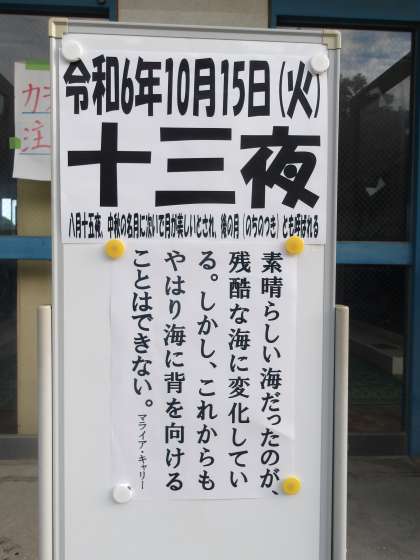 令和6年10月15日(火)
十三夜
八月十五夜、中秋の名月に次いで月が美しいとされ、後の月(のちのつき)とも呼ばれる
素晴らしい海だったのが、
残酷な海に変化してい
る。しかし、これからも
やはり海に背を向ける
ことはできない。
マライア・キャリー
注